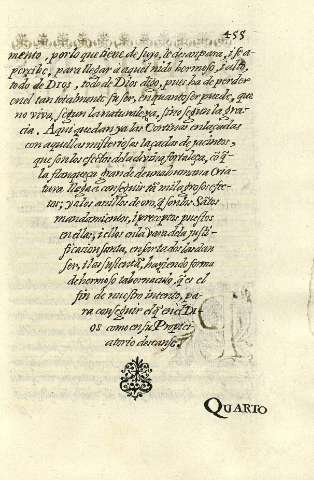 455
mento, por lo que tiene de suyo, se desampara, i se a-
percibe, para llegar a aquel nido hermoso, i alto,
todo de Dios, todo de Dios digo, pues ha de perder
en el tan totalmente su ser, en quanto ser puede, que
no viva, segun la naturaleza, sino segun la gra-
cia. Aqui quedan ya las Cortinas enlaçadas
con aquellas misteriosas laçadas de jacintos,
que son los efectos de la divina fortaleza, con q̃
la flaqueça grande de una humana Cria-
tura llega a conseguir tã milagrosos efec-
tos; y a los anillos de oro, q̃ son los Sãtos
mandamientos, i preceptos puestos
en ellas, i ellos en la vara de la justi-
ficacion santa, en sortados las dan
ser, i las sustentã, haziendo forma
de hermoso tabernaculo, q̃ es el
fin de nuestro intento, pa-
ra conseguir el q̃ en el Di-
os como en su Propici-
atorio descanse.
QUARTO